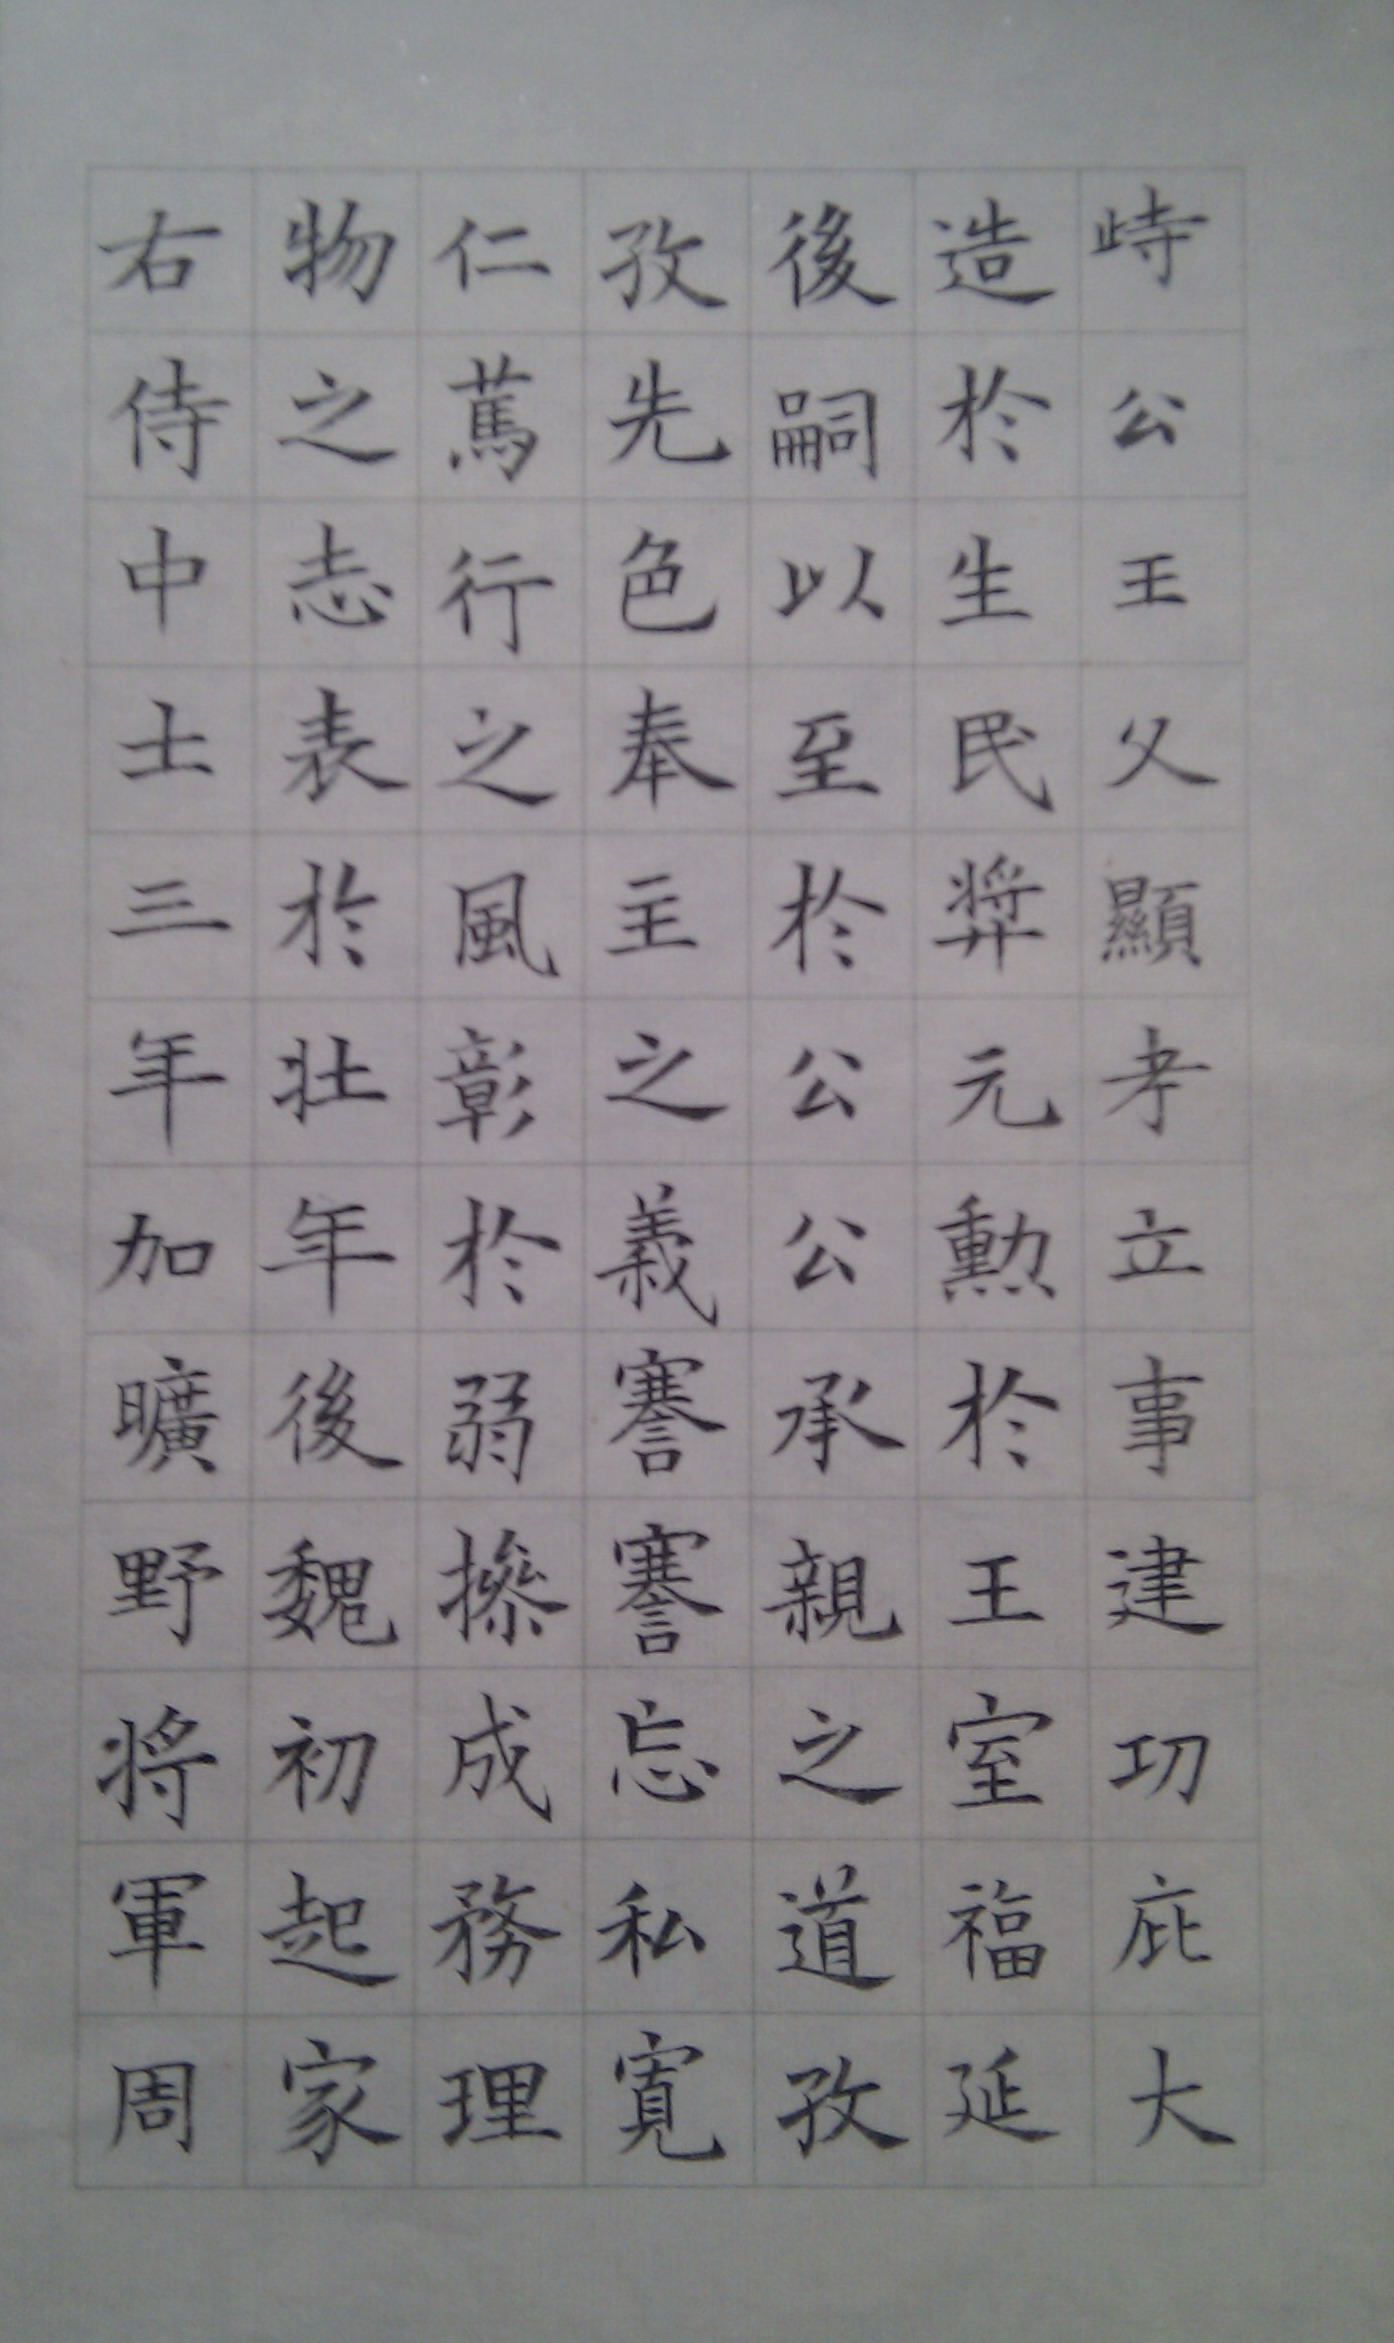 峙公王父顯考立事建功庇大
造於生民奬元勳於王室福延
後嗣以至於公公承親之道孜
孜先色奉主之義謇謇忘私寬
仁篤行之風彰於弱操成務理
物之志表於壯年後魏初起家
右侍中士三年加曠野将軍周